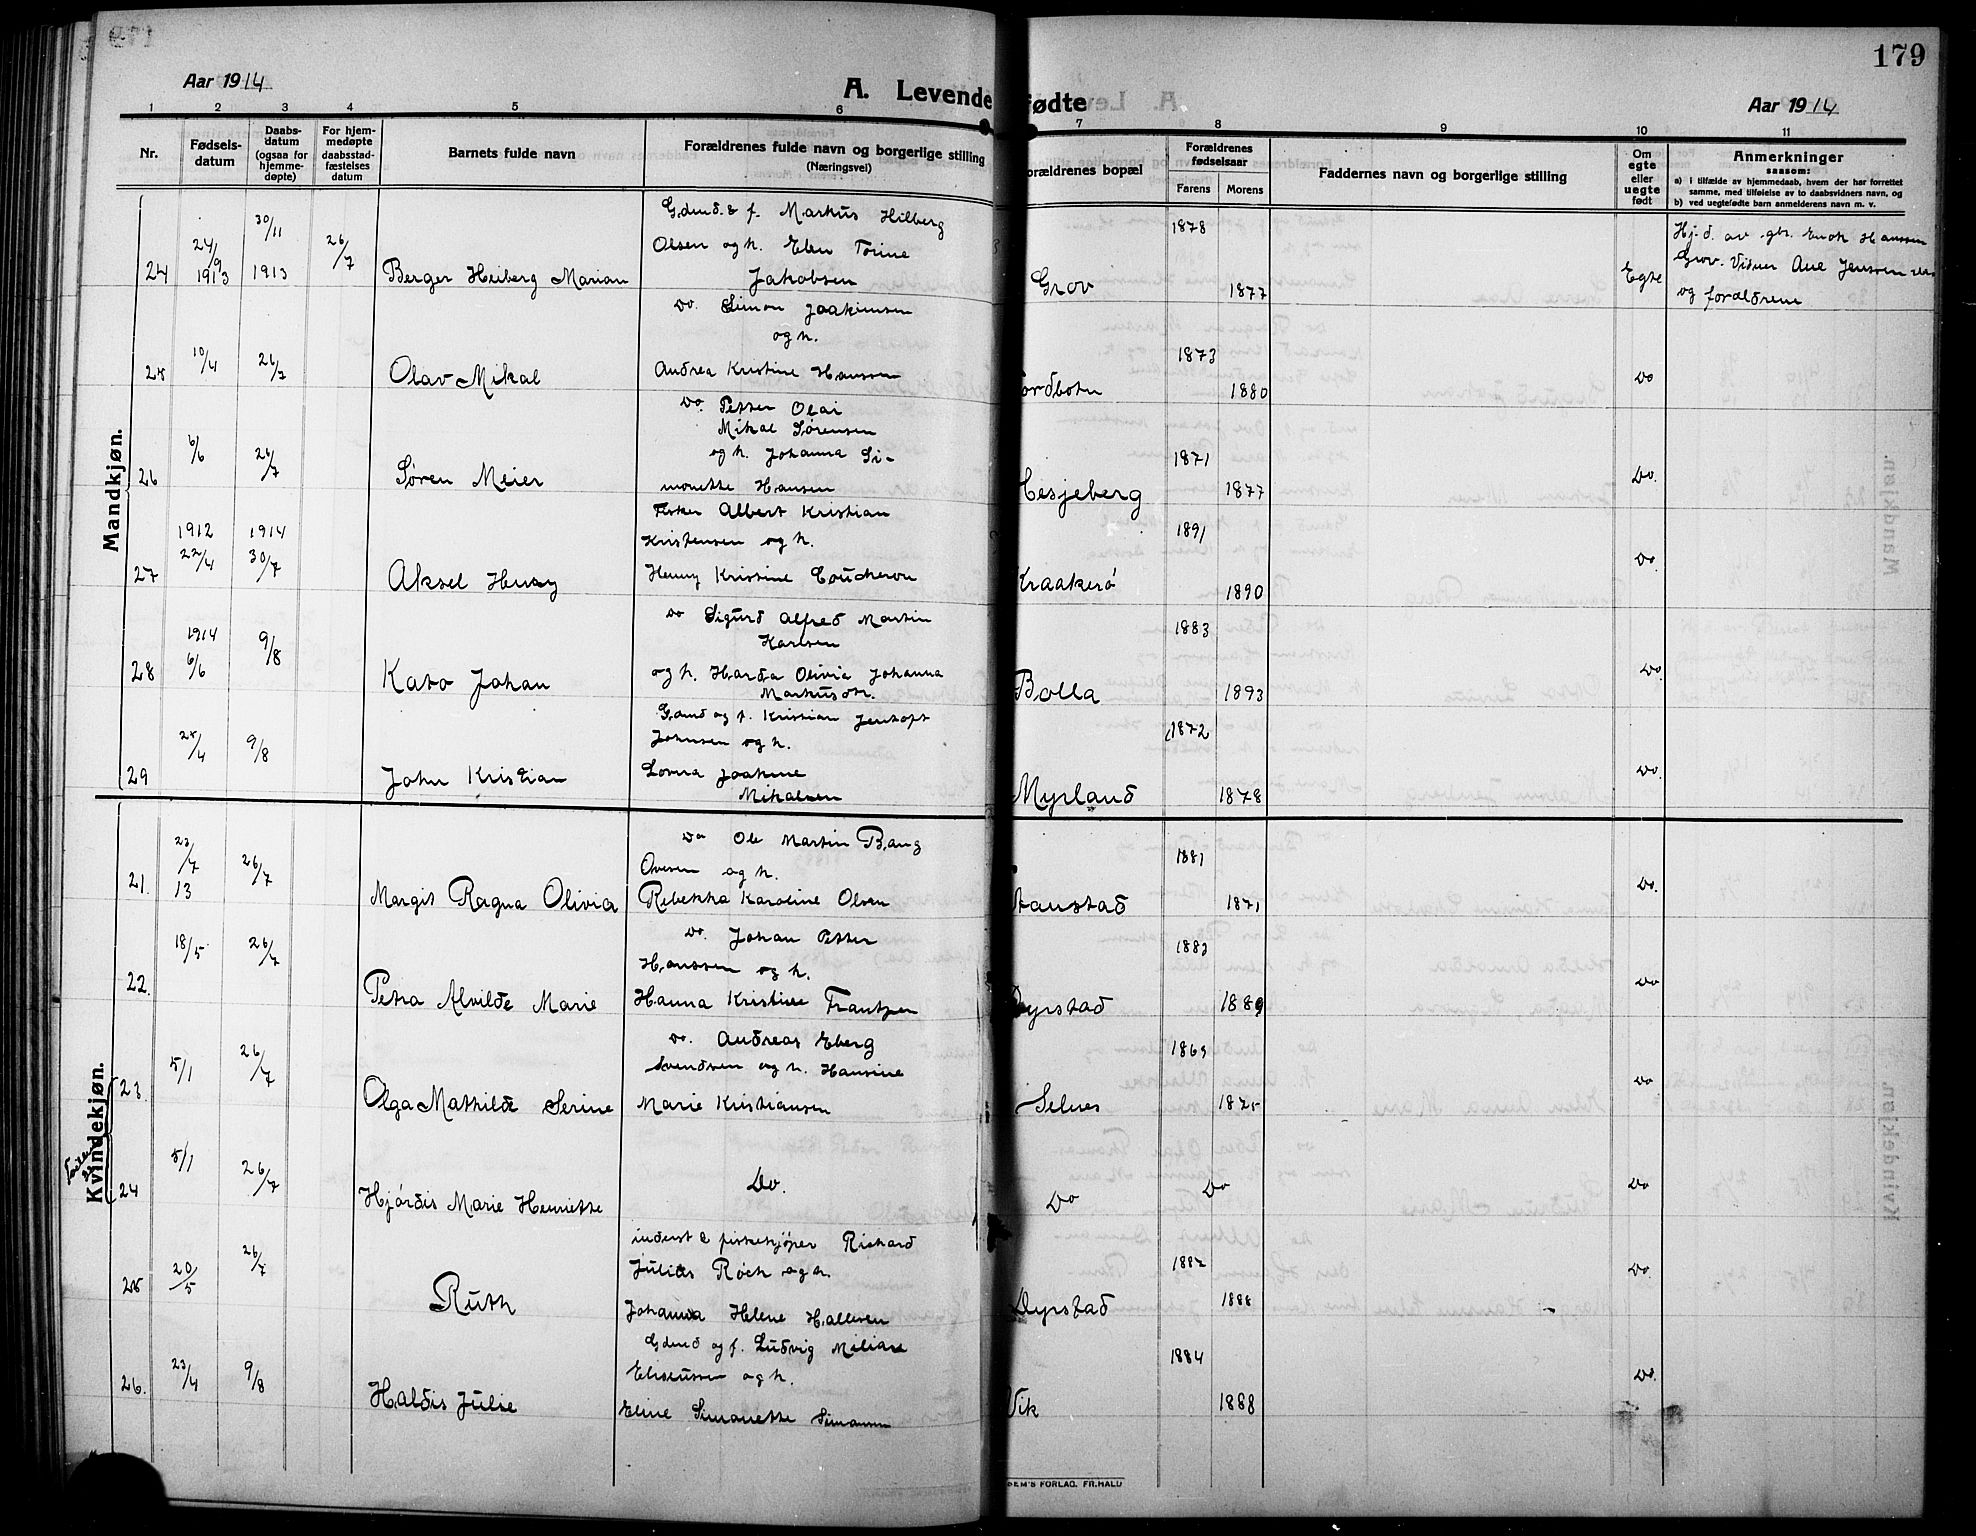 179
Aar 1914
A. Levende fødte
Aar 1914
1 2 3 4 5 6 7 8 9 10 11
Nr.
Fødsels-
datum
Daabs-
datum
(ogsaa for
hjemme-
døpte)
For hjem-
medøpte
daabsstad-
fæstelses
datum
Barnets fulde navn
Forældrenes fulde navn og borgerlige stilling
(Næringsvei)
orældrenes bopæl
Forældrenes
fødselsaar
Farens Morens
Faddernes navn og borgerlige stilling
Om
egte
eller
uegte
født
Anmerkninger
saasom:
a) i tilfælde av hjemmedaab, hvem der har forrettet
samme, med tilføielse av to daabsvidners navn, og
b) ved uegtefødte barn anmelderens navn m. v.
Mandkjøn.
24 24/9 1913 30/11 1913 26/7 Berger Heiberg Marian
Gdmd. & f. Markus Hilberg
Olsen og h. Elen Trine
Jakobsen
Grov 1878 1877 Egte
Hj.d. av gbr. Enok Hanssen
Grov. Vidner Ane Jenssen
og forældrene
25 10/4 26/7 Olav Mikal
Do. Simon Joakimsen
og h.
Andrea Kristine Hanssen
ordbotn 1873 1880 Do
26 6/6 26/7 Søren Meier
Do. Petter Olai
Mikal Sørensen
og h. Johanna Si-
monette Hansen
Hesjeberg 1871 1877 Do.
27 1912 22/4 1914 30/7 Aksel Henry
Fisker Albert Kristian
Kristensen og h.
Henny Kristine Coucheron
Kraakerø 1891 1890 Do.
28 1914 6/6 9/8 Kato Johan
Do Sigurd Alfred Martin
Karlsen
og h. Harda Olivia Johanna
Markusdtr.
Bolla 1883 1893 Do.
29 25/4 9/8 John Kristian
Gaard og f. Kristian Jentoft
Johnsen og h.
Lovna Joakine
Mikalsen
Myrland 1872 1878 Do.
Kvindekjøn.
21. 23/7 13 26/7 Margit Ragna Olivia
Do Ole Martin Bang
Ovesen og h.
Rebekka Karoline Olsen
austad 1881 1871 Do.
22. 18/5 26/7 Petra Alvilde Marie
Do. Johan Petter
Hanssen og h.
Hanna Kristine Frantzen
Dyrstad 1883 1889 Do
23 5/1 26/7 Olga Mathilde Serine
Do. Andreas Eberg
Svendsen og h. Hansine
Marie Kristiansen
Selnes 1869 1875 Do
24 5/1 26/7 Hjørdis Marie Henriette
Do. Do Do Do
25 20/5 26/7 Ruth
inderst & fiskekjøper Richard
Julius Røck og h.
Johanna Helene Hallesen
Dyrstad 1882 1888 Do.
26. 23/4 9/8 Haldis Julie
Gdmd og f. Ludvig Milian
Eliseussen og h.
Eline Simonette Simonsen
Vik 1884 1888 Do.
DEM'S FORLAG. FR.HALD